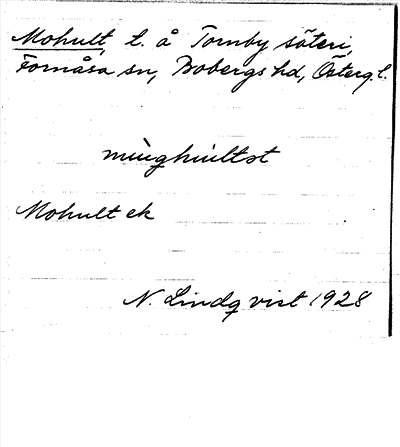 Mohult, l. å Tornby säteri,
Fornåsa sn, Bobergs hd, Österg.l.
Mohult ek
N. Lindqvist 1928